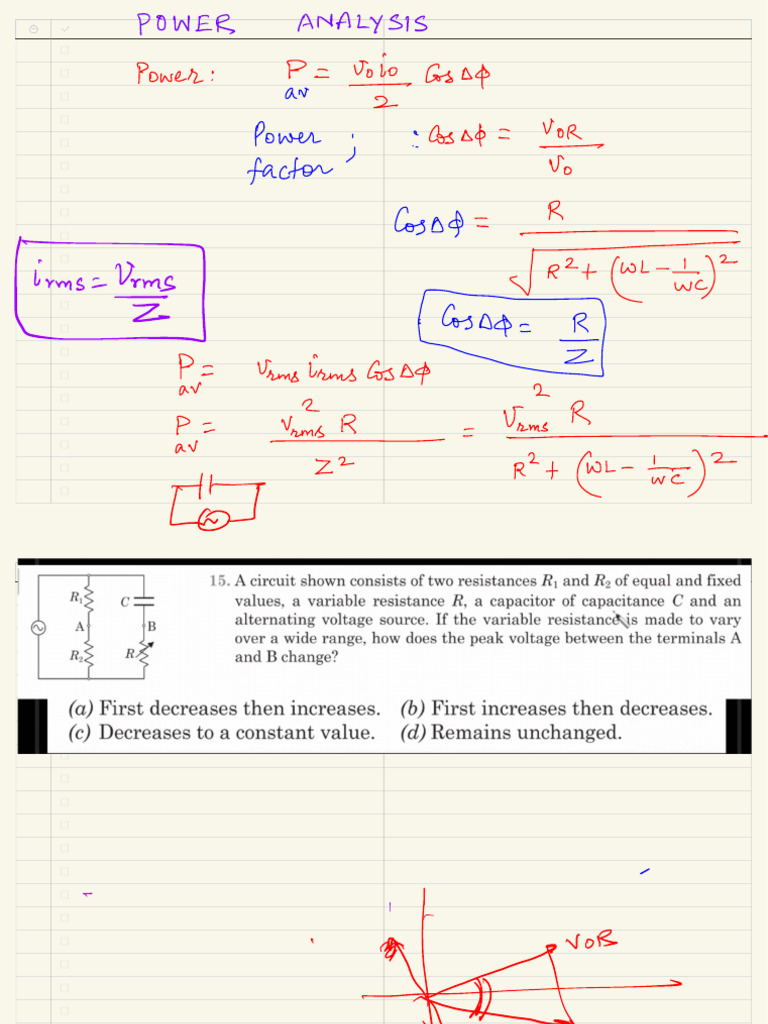 POWER ANALYSIS
Power: P_av = v₀i₀/2 Cos Δϕ
Power factor ; ∴ Cos Δϕ = V₀R/V₀
Cos Δϕ = R/√(R² + (ωL − 1/ωC)²)
i_rms = V_rms/Z
Cos Δϕ = R/Z
P_av = V_rms i_rms Cos Δϕ
P_av = V²_rms R/Z² = V²_rms R/(R² + (ωL − 1/ωC)²)
R₁
C
A
B
R₂
R
15. A circuit shown consists of two resistances R₁ and R₂ of equal and fixed
values, a variable resistance R, a capacitor of capacitance C and an
alternating voltage source. If the variable resistance is made to vary
over a wide range, how does the peak voltage between the terminals A
and B change?
(a) First decreases then increases. (b) First increases then decreases.
(c) Decreases to a constant value. (d) Remains unchanged.
V₀R